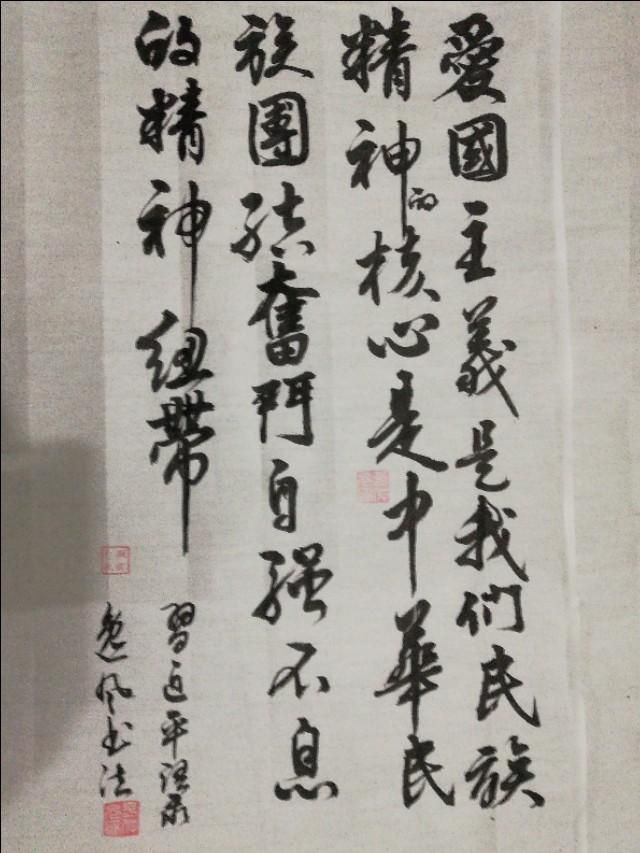 愛國主義是我們民族
精神的核心是中華民
族團結奮鬥自强不息
的精神紐帶
習近平語录
逸风书法